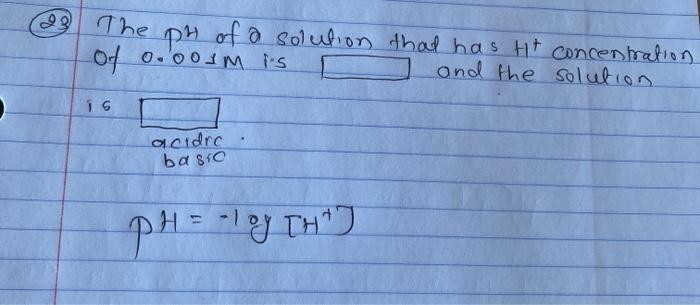 23 The pH of a solution that has H+ concentration
of 0.001M is and the solution
is
acidic .
basic
pH = -log [H+]